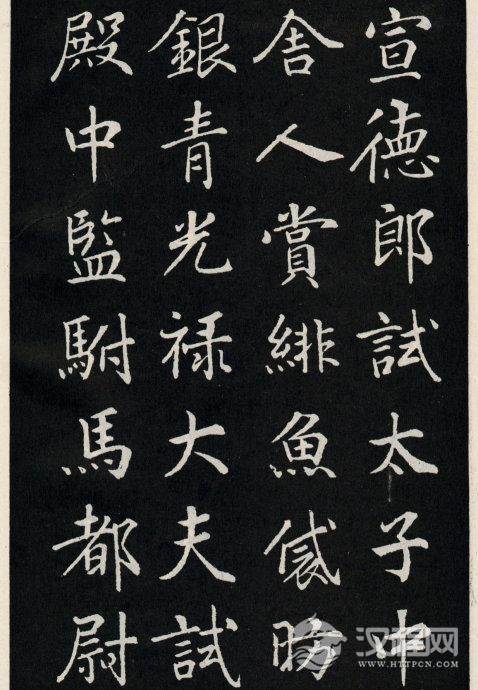 宣德郎試太子中
舎人賞緋魚袋昉
銀青光禄大夫試
殿中監駙馬都尉
汉程网
WWW.HTTPCN.COM